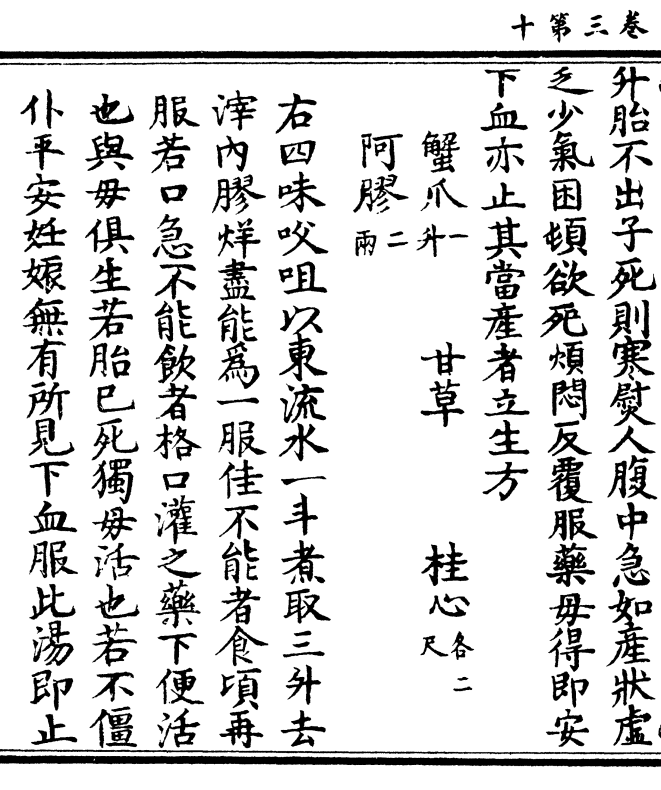 卷三第十
升胎不出子死則寒熨人腹中急如產狀虛
乏少氣困頓欲死煩悶反覆服藥毋得即安
下血亦止其當產者立生方
蟹爪一升 甘草 桂心各二尺
阿膠二兩
右四味㕮咀以東流水一斗煮取三升去
滓內膠烊盡能爲一服佳不能者食頃再
服若口急不能飲者格口灌之藥下便活
也與毋俱生若胎已死獨毋活也若不僵
仆平安妊娠無有所見下血服此湯即止